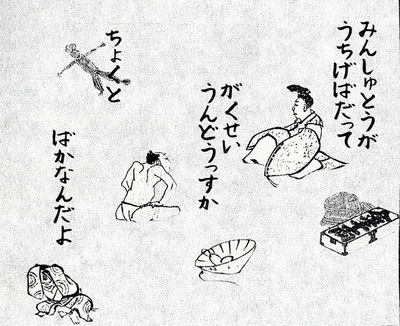 みんしゅとうが
うちげばだって
がくせい
うんどうっすか
ちょくと
ばかなんだよ